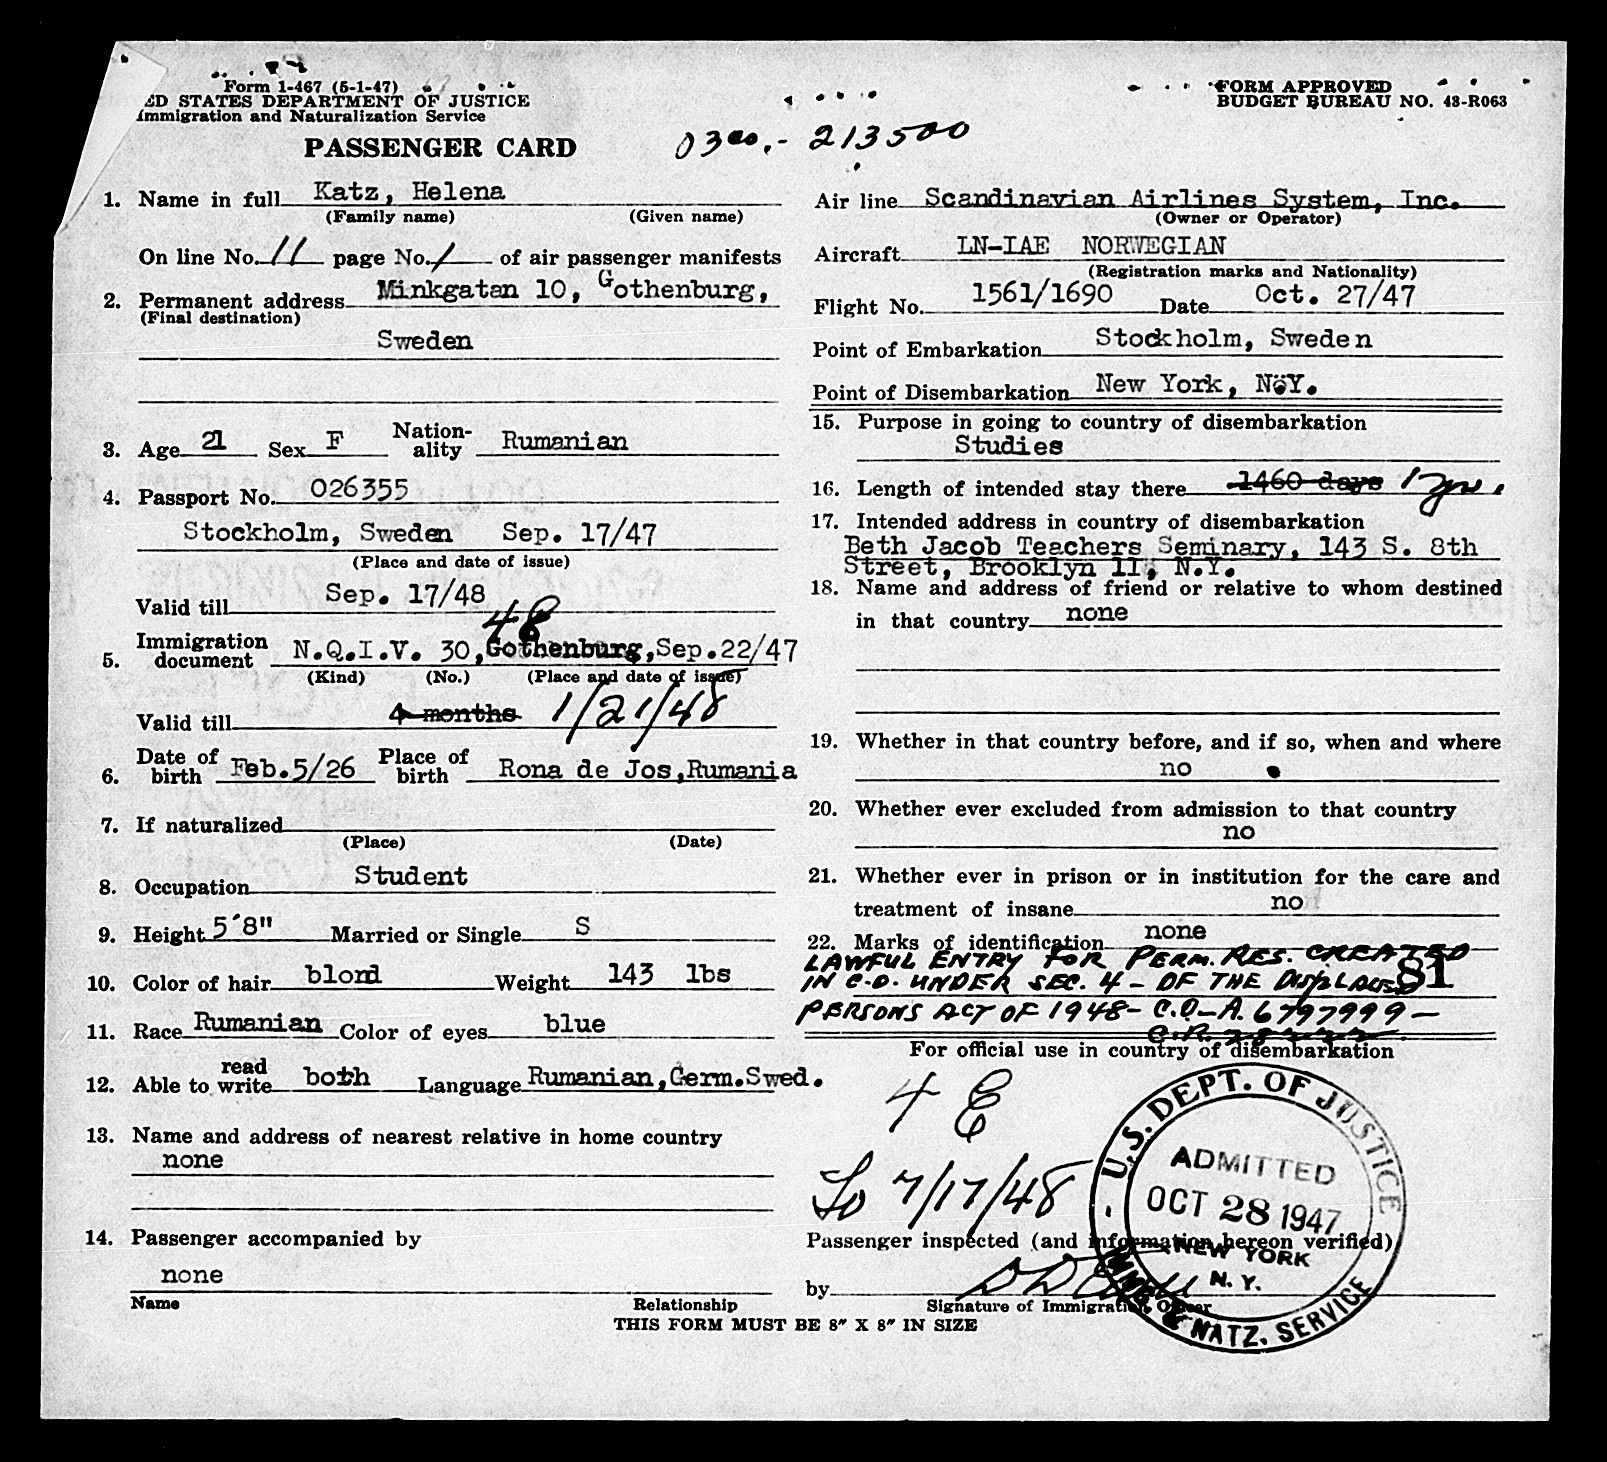 Form 1-467 (5-1-47)
ED STATES DEPARTMENT OF JUSTICE
Immigration and Naturalization Service
PASSENGER CARD
FORM APPROVED
BUDGET BUREAU NO. 43-R063
0300.- 213500
1. Name in full Katz, Helena
(Family name) (Given name)
On line No. 11 page No. 1 of air passenger manifests
2. Permanent address Minkgatan 10, Gothenburg,
(Final destination)
Sweden
3. Age 21 Sex F Nation-ality Rumanian
4. Passport No. 026355
Stockholm, Sweden Sep. 17/47
(Place and date of issue)
Valid till Sep. 17/48
4E
5. Immigration document N.Q.I.V. 30, Gothenburg, Sep.22/47
(Kind) (No.) (Place and date of issue)
Valid till 4 months 1/21/48
6. Date of birth Feb.5/26 Place of birth Rona de Jos, Rumania
7. If naturalized
(Place) (Date)
8. Occupation Student
9. Height 5'8" Married or Single S
10. Color of hair blond Weight 143 lbs
11. Race Rumanian Color of eyes blue
12. Able to read write both Language Rumanian, Germ.Swed.
13. Name and address of nearest relative in home country
none
14. Passenger accompanied by
none
Name Relationship
Air line Scandinavian Airlines System, Inc.
(Owner or Operator)
Aircraft LN-IAE NORWEGIAN
(Registration marks and Nationality)
Flight No. 1561/1690 Date Oct. 27/47
Point of Embarkation Stockholm, Sweden
Point of Disembarkation New York, N.Y.
15. Purpose in going to country of disembarkation
Studies
16. Length of intended stay there 1460 days 1 yr.
17. Intended address in country of disembarkation
Beth Jacob Teachers Seminary, 143 S. 8th
Street, Brooklyn 11, N.Y.
18. Name and address of friend or relative to whom destined
in that country none
19. Whether in that country before, and if so, when and where
no
20. Whether ever excluded from admission to that country
no
21. Whether ever in prison or in institution for the care and
treatment of insane no
22. Marks of identification none
LAWFUL ENTRY FOR PERM. RES. CREATED
81
IN C.O. UNDER SEC. 4 - OF THE DISPLACED
PERSONS ACT OF 1948 - C.O. - A. 6797999 -
For official use in country of disembarkation
4 E
To 7/17/48
Passenger inspected (and information hereon verified)
by
Signature of Immigration Officer
U.S. DEPT. OF JUSTICE
ADMITTED
OCT 28 1947
NEW YORK
N. Y.
IMMG. & NATZ. SERVICE
THIS FORM MUST BE 8" X 8" IN SIZE